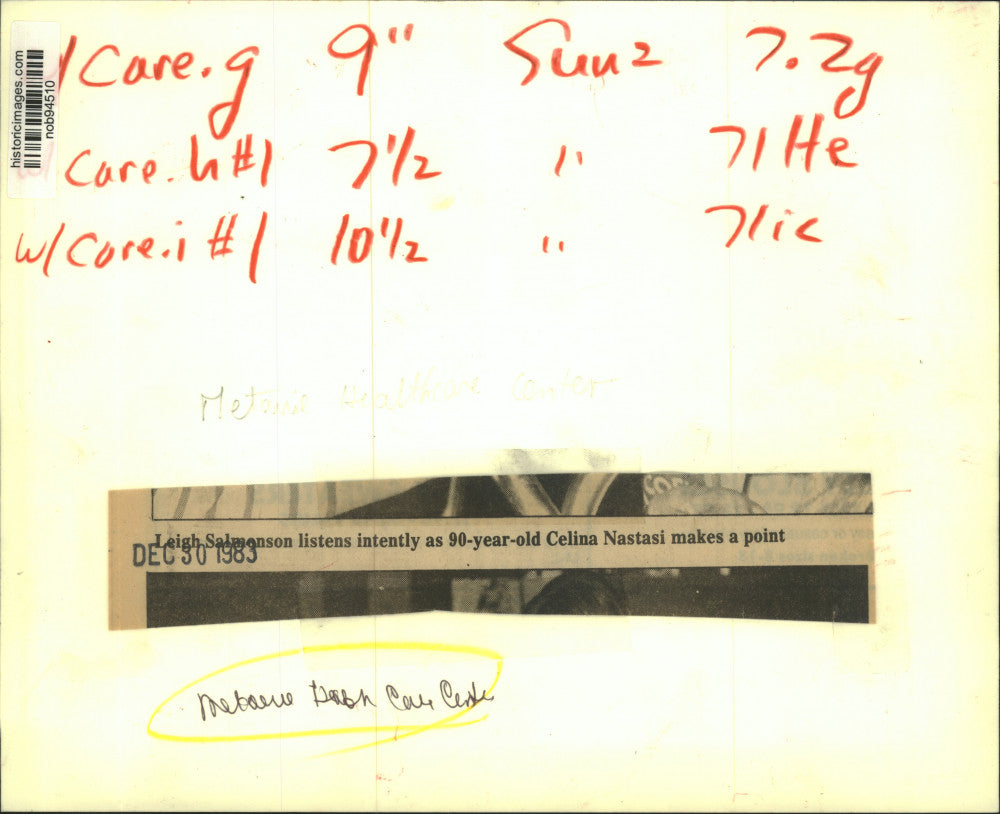 historicimages.com
nob94510
w/ Care.g 9" Sun 2 7.2g
w/ Care.h #1 7 1/2 " 71He
w/ Care.i #1 10 1/2 " 71ic
Metairie Healthcare Center
Leigh Salmonson listens intently as 90-year-old Celina Nastasi makes a point
DEC 30 1983
Metairie Health Care Center